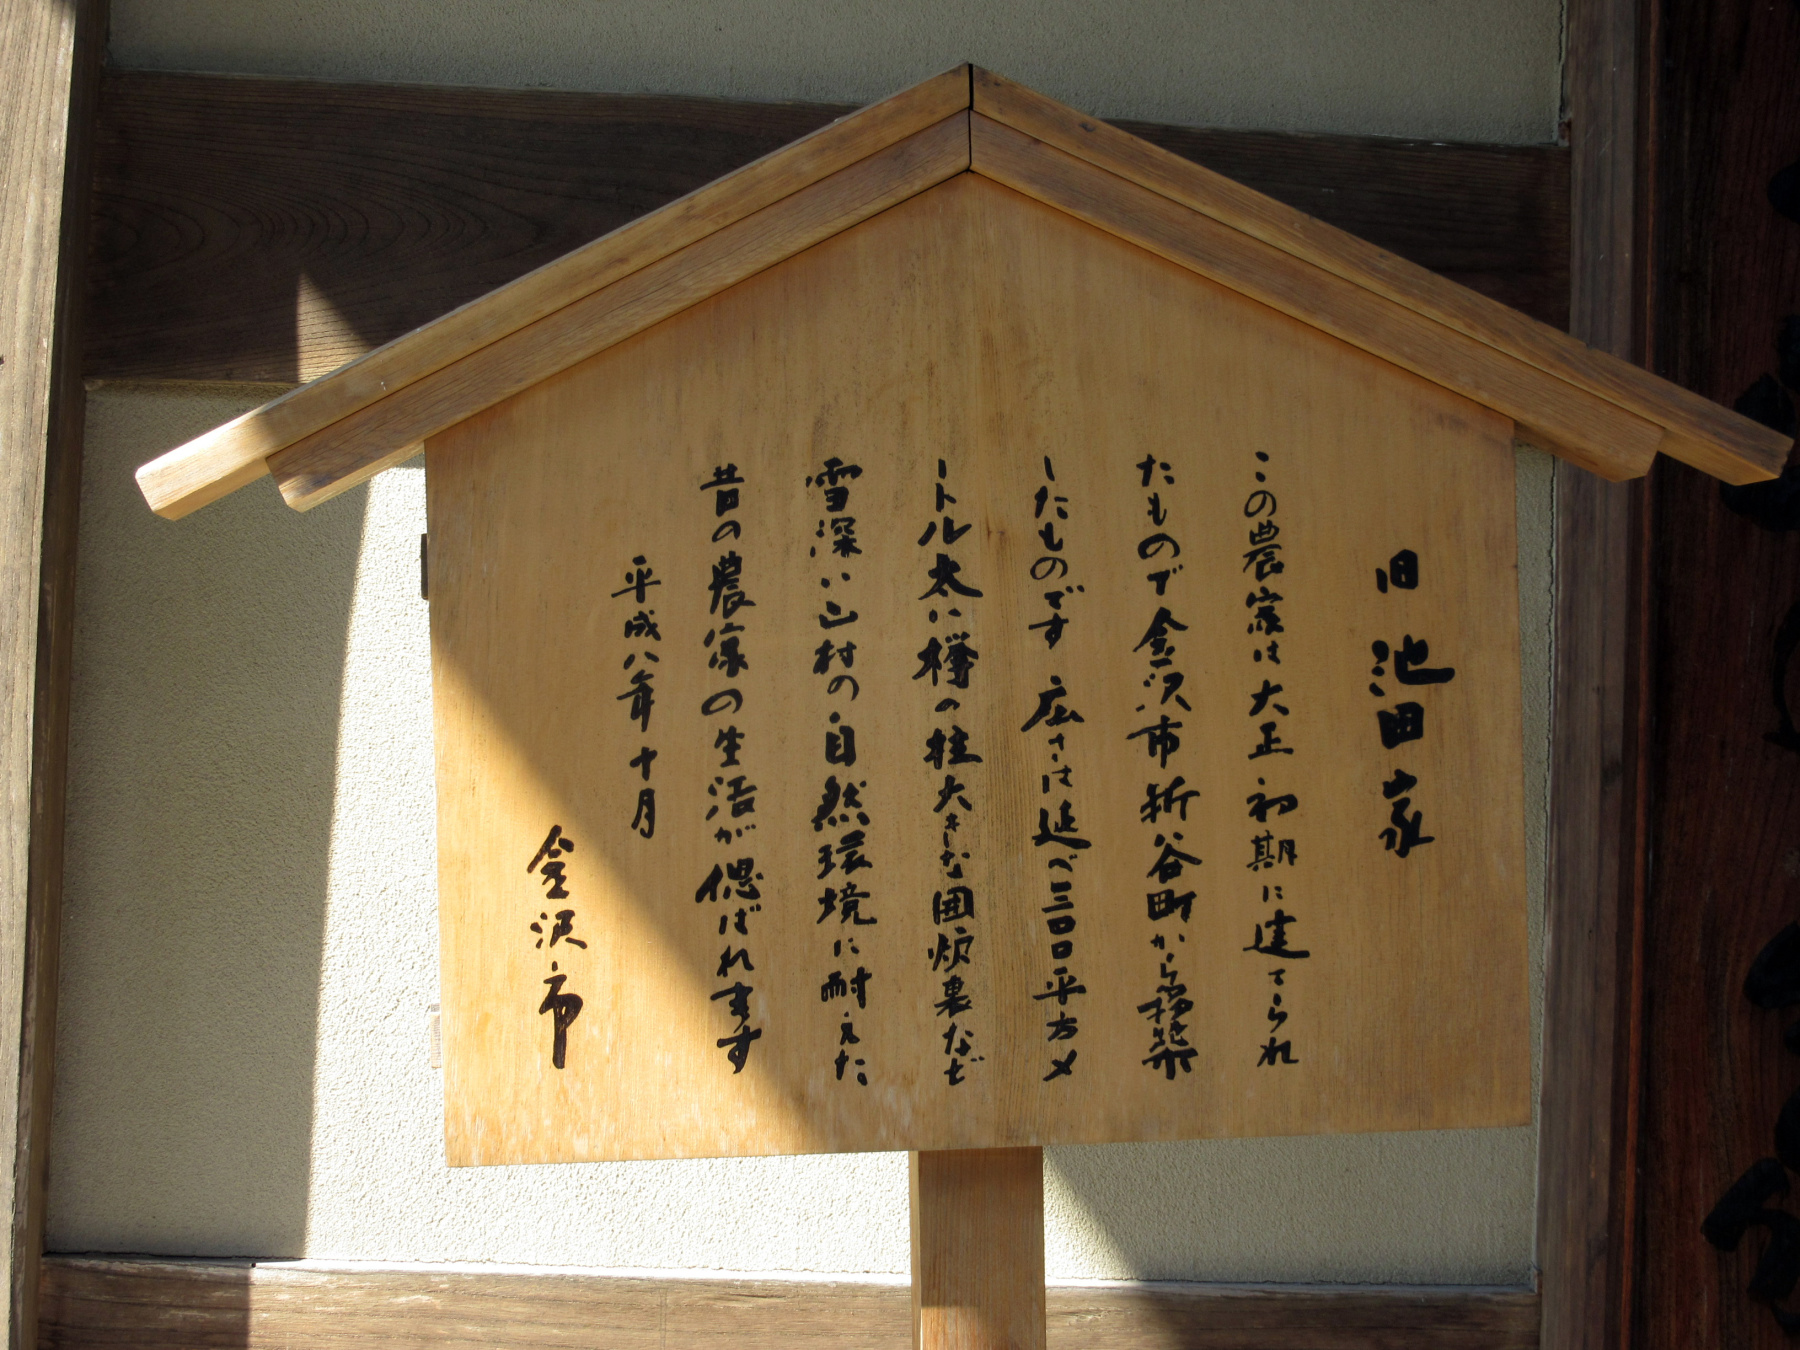 旧 池田家
この農家は大正初期に建てられ
たもので金沢市折谷町から移築
したものです 広さは延べ三〇〇平方メ
ートル太い欅の柱大きな囲炉裏など
雪深い山村の自然環境に耐えた
昔の農家の生活が偲ばれます
平成八年十月
金沢市